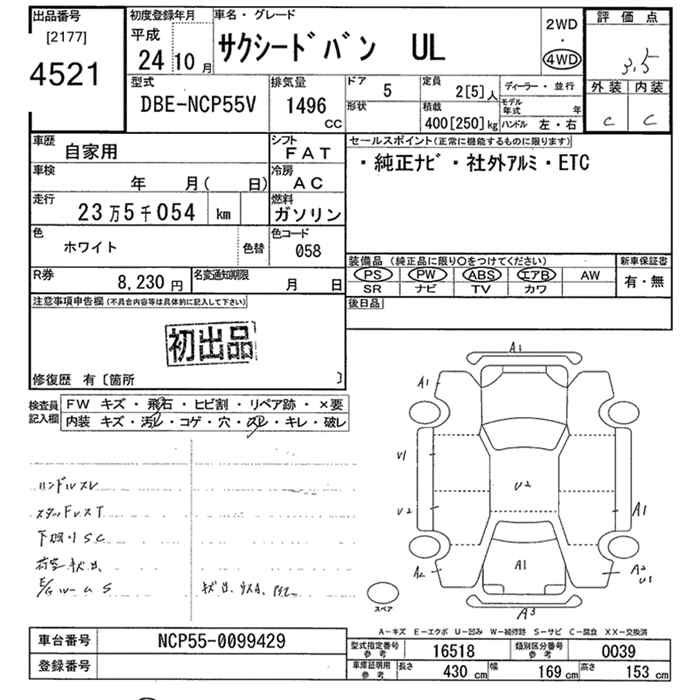 出品番号
[2177]
4521
初度登録年月
平成
24 10 月
車名・グレード
サクシードバン UL
2WD
・
4WD
評価点
3.5
外装 内装
C C
型式
DBE-NCP55V
排気量
1496
CC
ドア
5
形状
定員
2[5]人
積載
400[250]kg
ディーラー・並行
モデル年式 年
ハンドル 左・右
車歴
自家用
シフト
FAT
車検
年 月( 日)
冷房
AC
走行
23万5千054 km
燃料
ガソリン
色
ホワイト
色替
色コード
058
R券
8,230円
名変通知期限
月 日
セールスポイント(正常に機能するものに限ります)
・純正ナビ・社外アルミ・ETC
装備品(純正品に限り○をつけてください)
PS PW ABS エアB AW
SR ナビ TV カワ
新車保証書
有・無
後日品
注意事項申告欄(不具合内容等は具体的に記入して下さい)
初出品
修復歴 有〔箇所 〕
検査員記入欄
FW キズ・飛石・ヒビ割・リペア跡・×要
内装 キズ・汚レ・コゲ・穴・スレ・キレ・破レ
ハンドルスレ
下廻りSC
A1
A1
U1
U2
U2
A1
A2
A1
A2
U1
A3
スペア
A-キズ E-エクボ U-凹み W-補修跡 S-サビ C-腐食 XX-交換済
車台番号
NCP55-0099429
登録番号
型式指定番号
参考
16518
類別区分番号
参考
0039
車庫証明用
参考
長さ 430 cm 幅 169 cm 高さ 153 cm